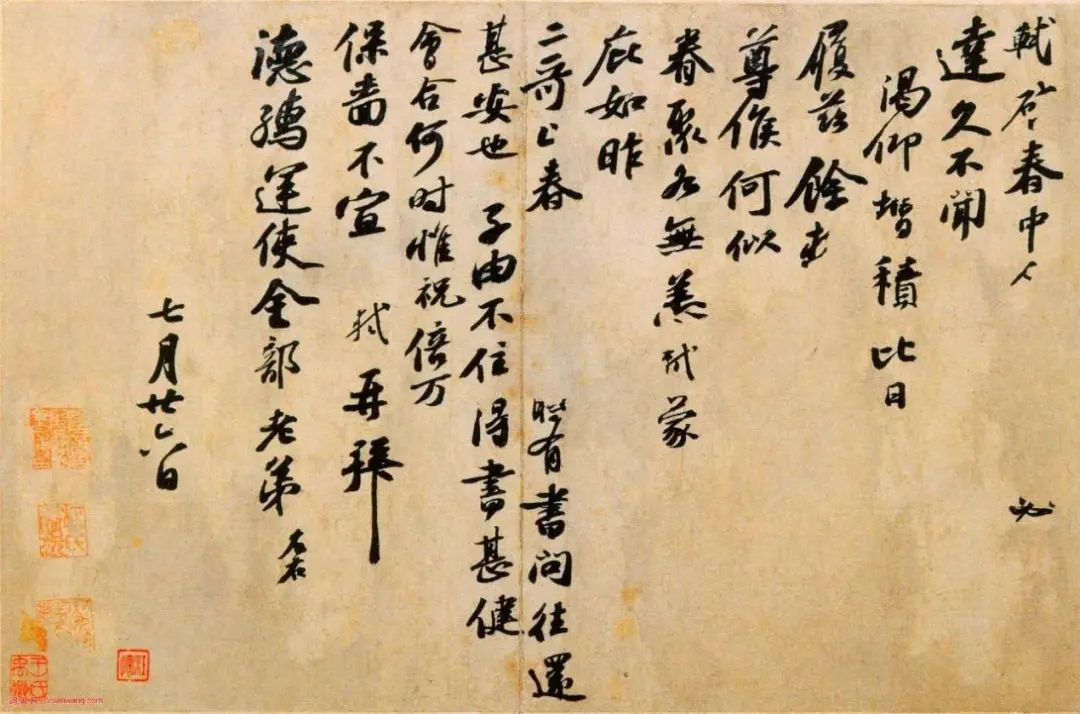 軾啓春中 必
達久不聞
渴仰增積比日
履茲餘
尊候何似
眷聚各無恙軾蒙
庇如昨
二哥上春 時有書問往還
甚安也 子由不住得書甚健
會合何时惟祝倍万
保嗇不宣 軾再拜
德孺運使金部老弟 左右
七月廿六日